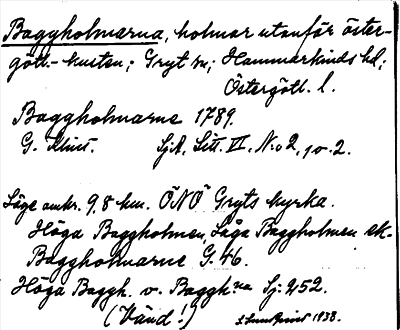 Baggholmarna, holmar utanför öster-
götl.-kusten; Gryt sn; Hammarkinds hd;
Östergötl. l.
Baggholmarne 1789.
G. Klint. SjA, Litt. VI, N:o 2, 10.2.
Läge omkr. 9,8 km. ÖNÖ Gryts kyrka.
Höga Baggholmen, Låga Baggholmen ek-
Baggholmarne G. 46.
Höga Baggh. v. Baggh.na Sj: 252.
(Vänd!) 1938.